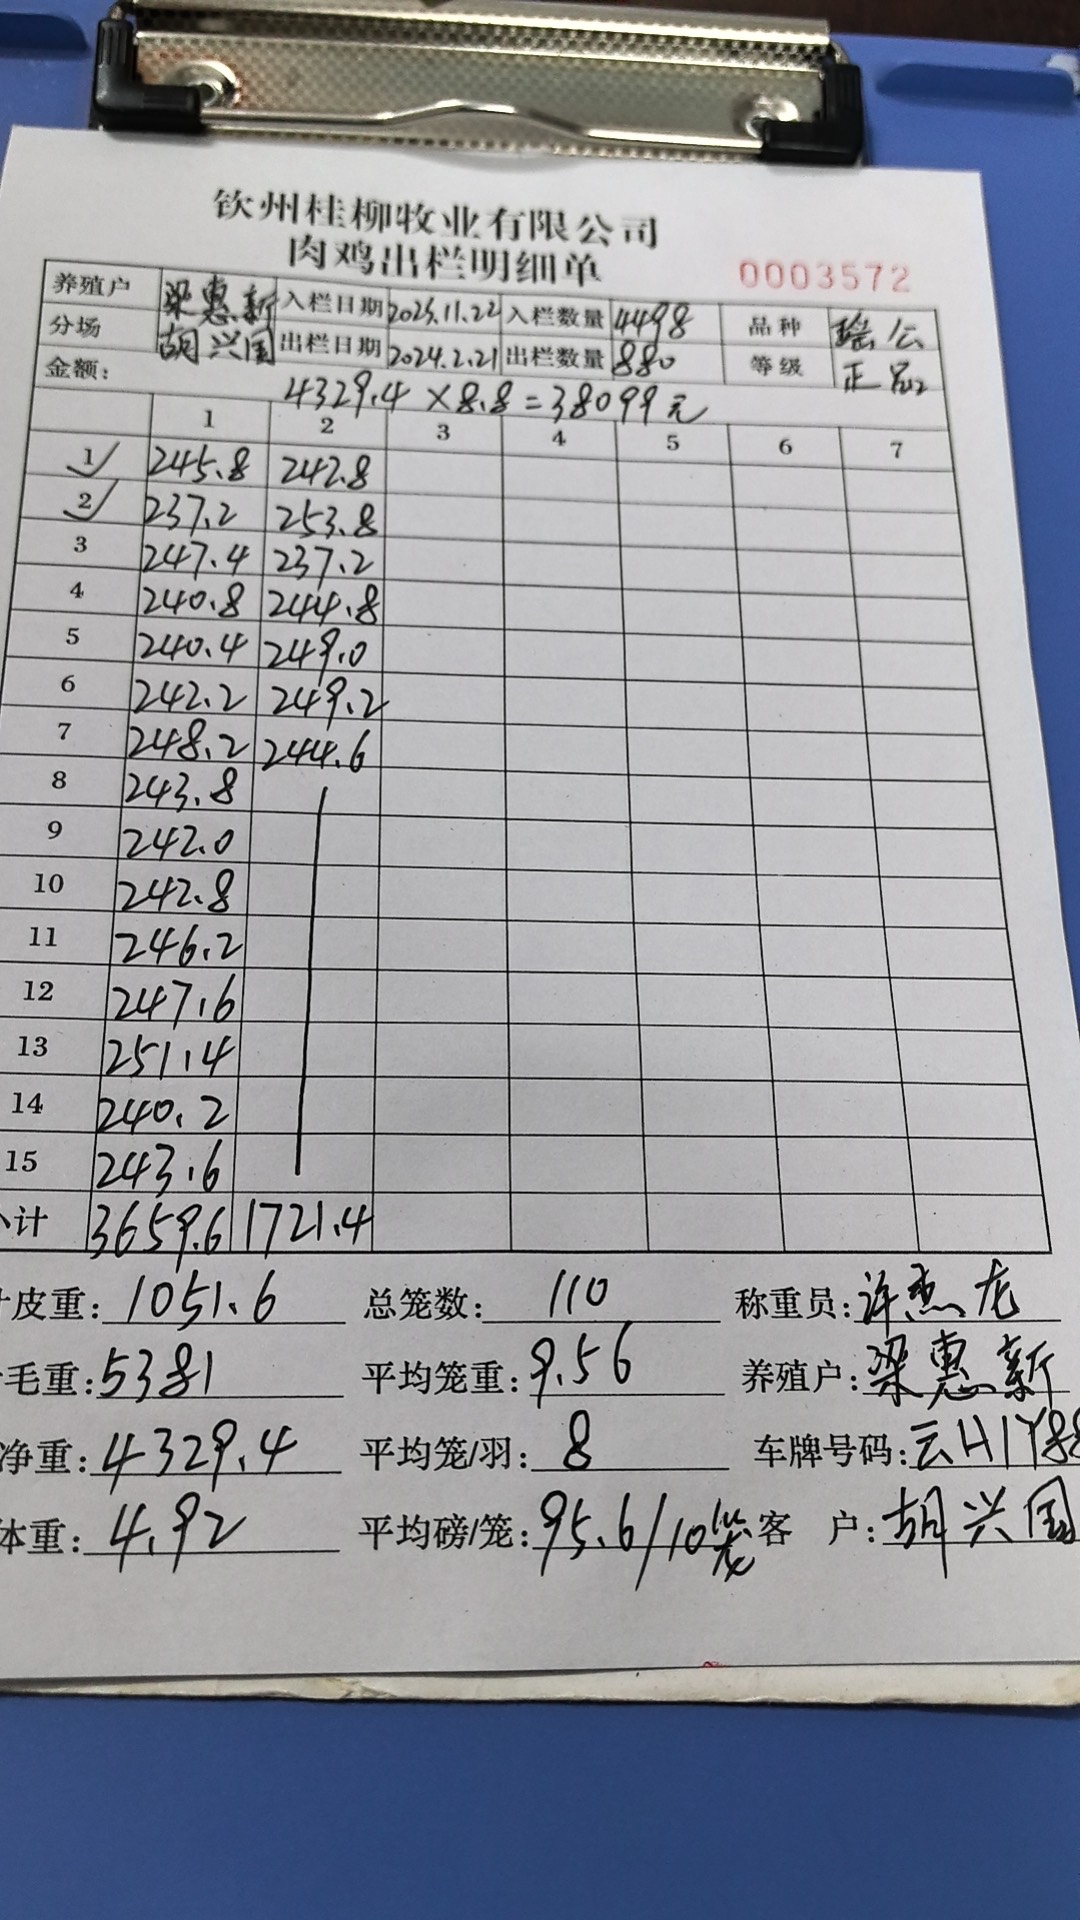 钦州桂柳牧业有限公司
肉鸡出栏明细单
0003572
养殖户 梁惠新 入栏日期 2023.11.22 入栏数量 4498 品种 瑶公
分场 胡兴国 出栏日期 2024.2.21 出栏数量 880 等级 正品
金额: 4329.4×8.8=38099元
1 2 3 4 5 6 7
1 245.8 242.8
2 237.2 253.8
3 247.4 237.2
4 240.8 244.8
5 240.4 249.0
6 242.2 249.2
7 248.2 244.6
8 243.8
9 242.0
10 242.8
11 246.2
12 247.6
13 251.4
14 240.2
15 243.6
小计 3659.6 1721.4
皮重: 1051.6 总笼数: 110 称重员: 许杰龙
毛重: 5381 平均笼重: 9.56 养殖户: 梁惠新
净重: 4329.4 平均笼/羽: 8 车牌号码: 云H1Y88
体重: 4.92 平均磅/笼: 95.6/10笼 客户: 胡兴国